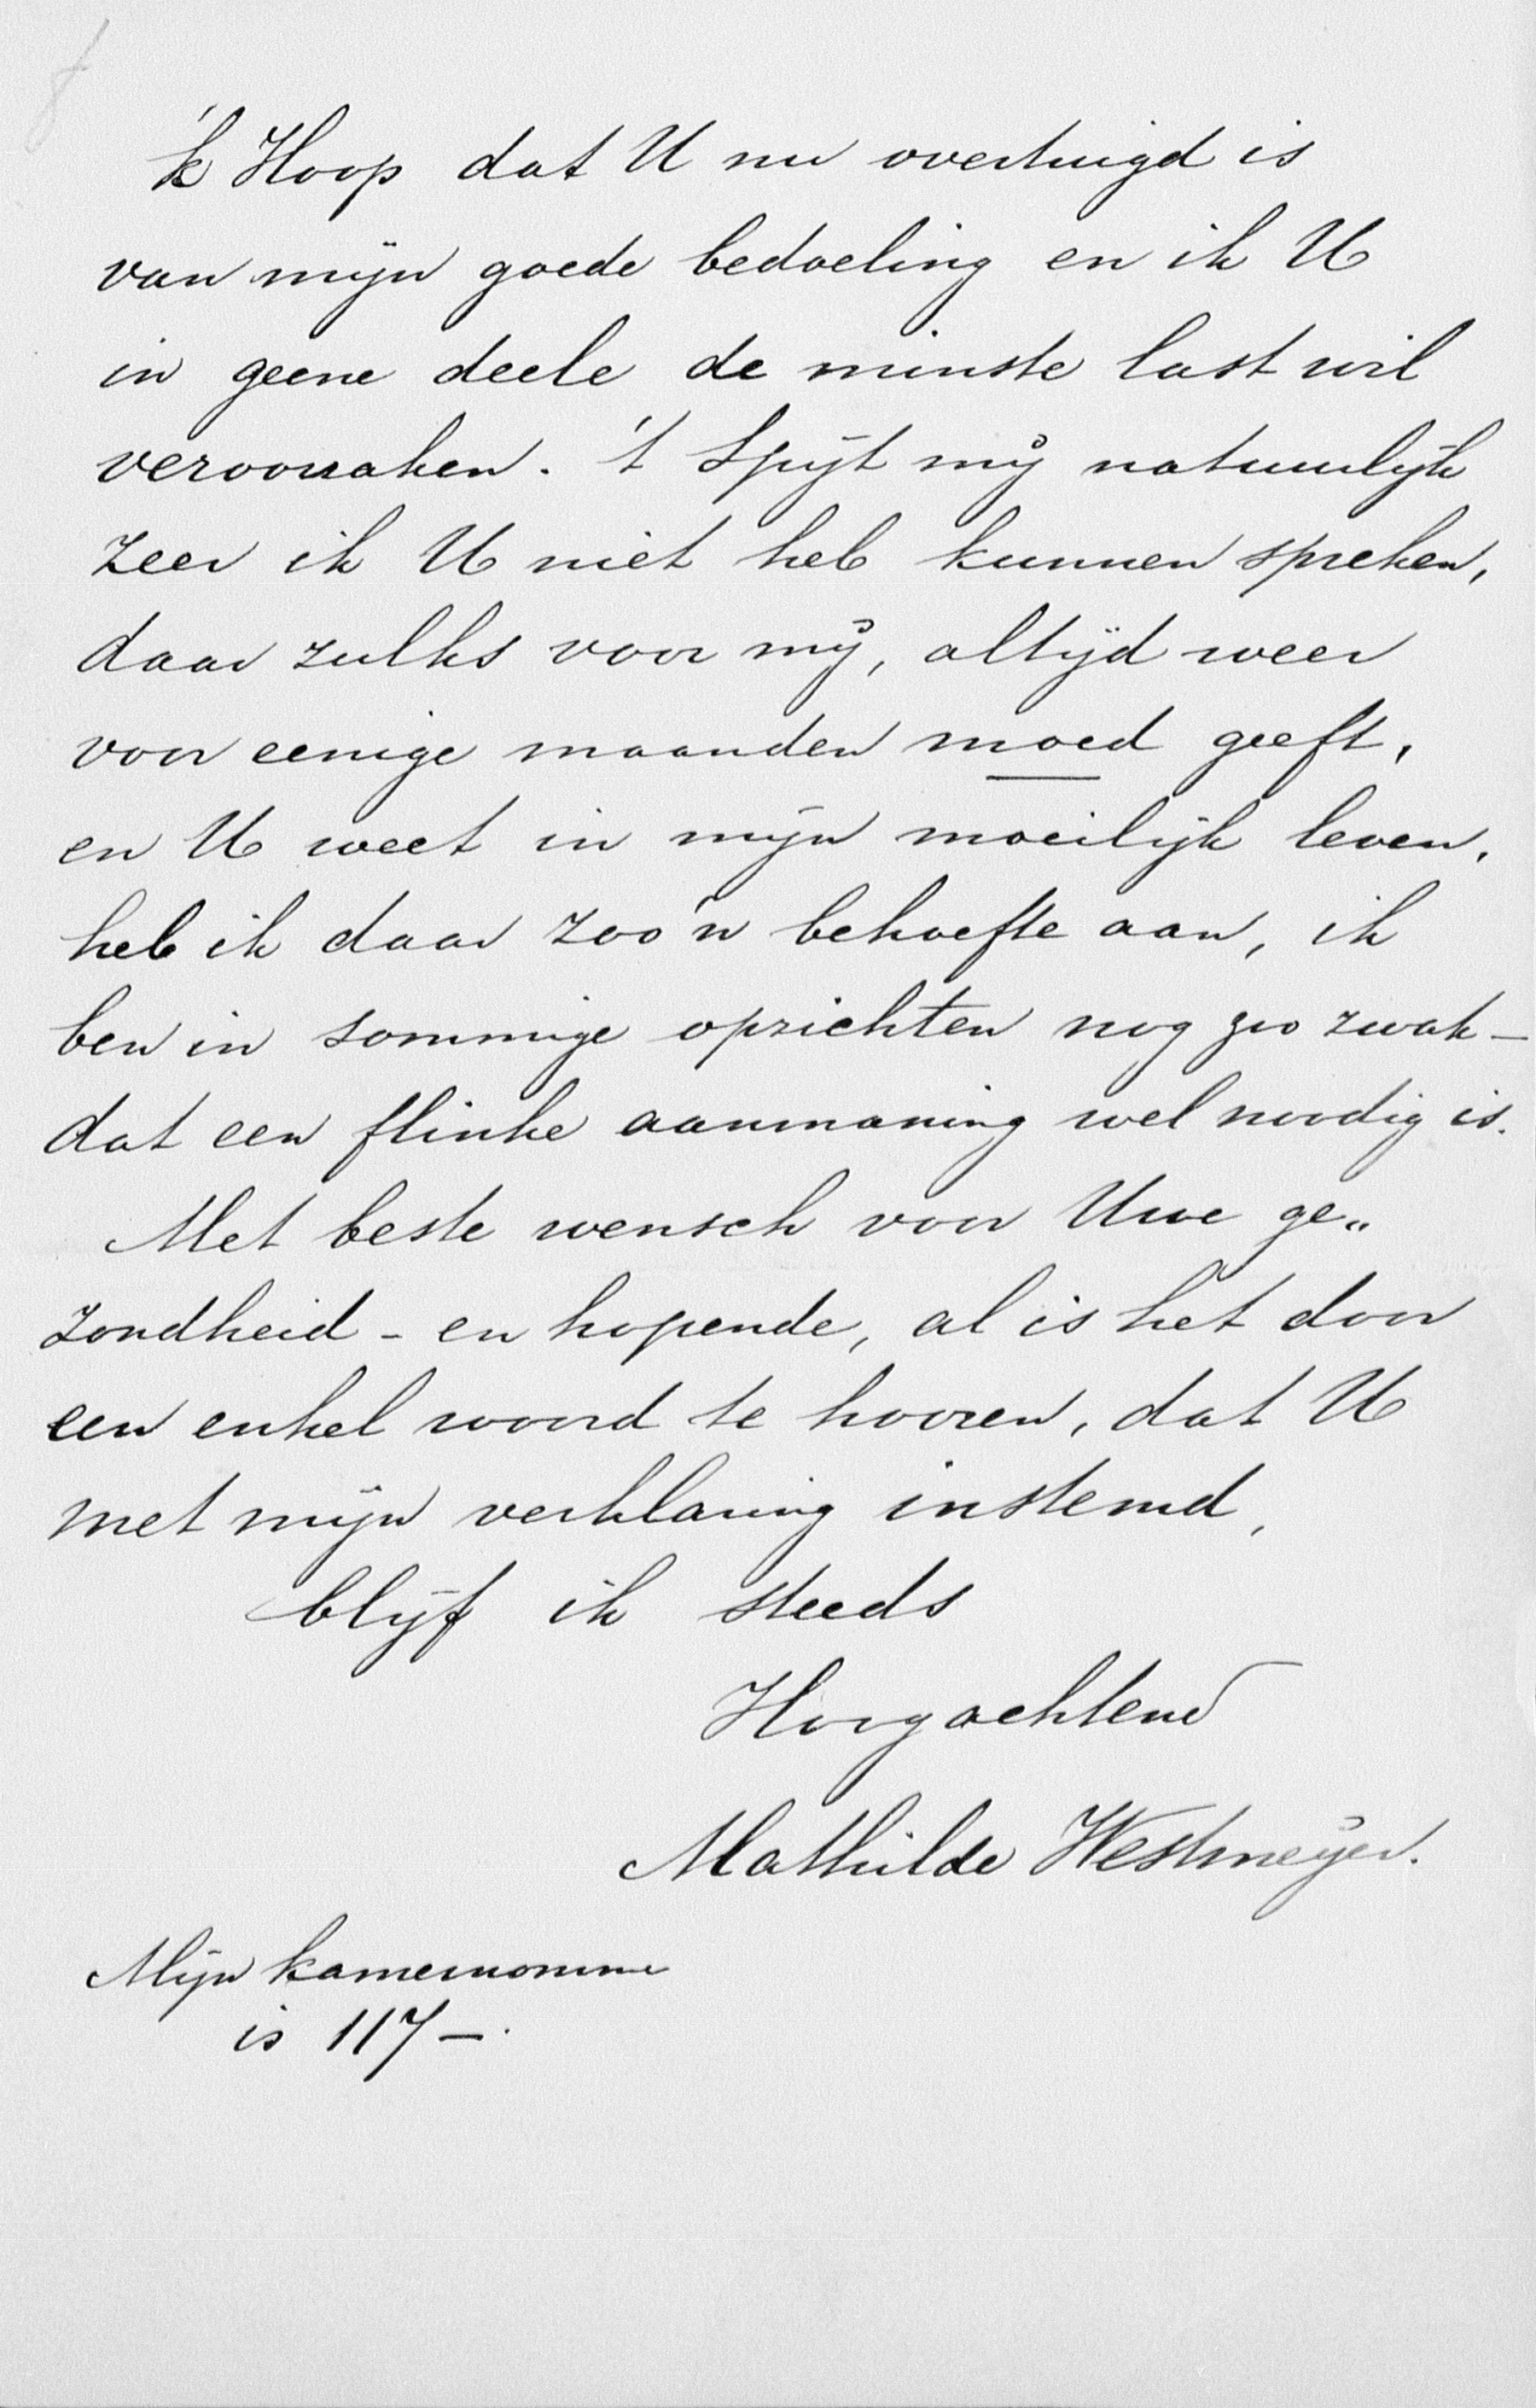 8
'k Hoop dat U nu overtuigd is
van mijn goede bedoeling en ik U
in geene deele de minste last wil
veroorzaken. 't Spijt mij natuurlijk
zeer ik U niet heb kunnen spreken,
daar zulks voor mij, altijd weer
voor eenige maanden moed geeft,
en U weet in mijn moeilijk leven,
heb ik daar zoo'n behoefte aan, ik
ben in sommige opzichten nog zoo zwak –
dat een flinke aanmaning wel noodig is.
Met beste wensch voor Uwe ge„
zondheid – en hopende, al is het door
een enkel woord te hooren, dat U
met mijn verklaring instemd,
blijf ik steeds
Hoogachtend
Mathilde Westmeijer.
Mijn kamernommer
is 117 –.